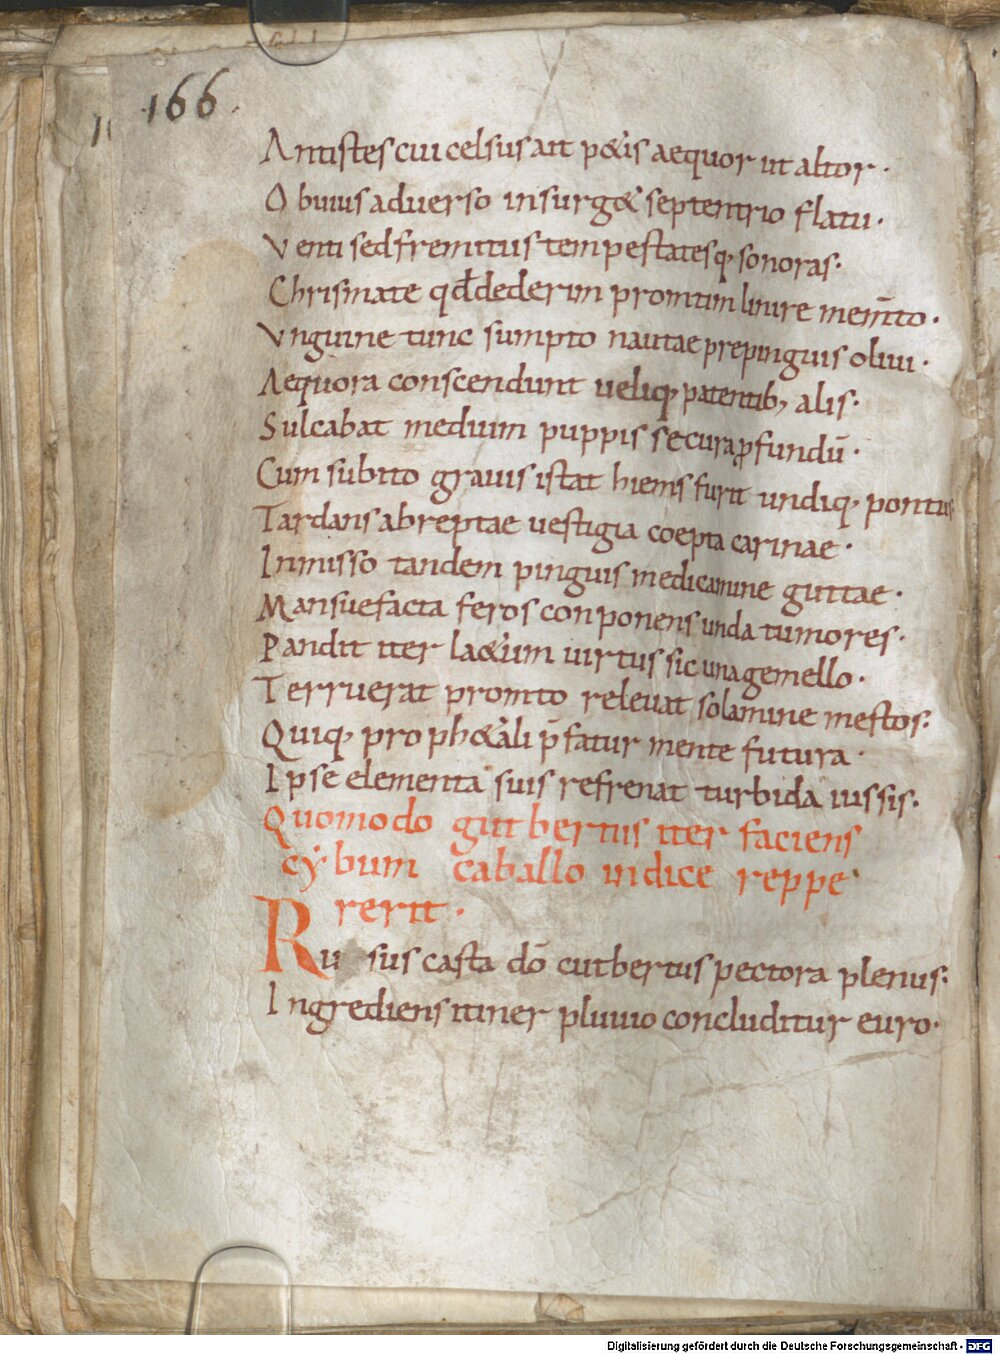 ·166·
Antistes cui celsus ait p&is aequor ut altor·
Obuius aduerso insurg& septentrio flatu·
Venti sed fremitus tempestatesq; sonoras·
Chrismate qđ dederim promtim linire mem̄to·
Vnguine tunc sumpto nautae prepinguis oliui·
Aequora conscendunt ueliq; patentib; alis·
Sulcabat medium puppis secura ꝓfundū·
Cum subito grauis istat hiems furit undiq; pontus
Tardans abreptae uestigia coepta carinae·
Inmisso tandem pinguis medicamine guttae·
Mansuefacta feros conponens unda tumores·
Pandit iter la&um uirtus sic una gemello·
Terruerat promto releuat solamine mestos·
Quiq; proph&ali p̄fatur mente futura·
Ipse elementa suis refrenat turbida iussis·
Quomodo gutbertus iter faciens
cẏbum caballo indice reppe
rerit·
Ru sus casta dō cutbertus pectora plenus·
Ingrediens itiner pluuio concluditur euro·
Digitalisierung gefördert durch die Deutsche Forschungsgemeinschaft - DFG